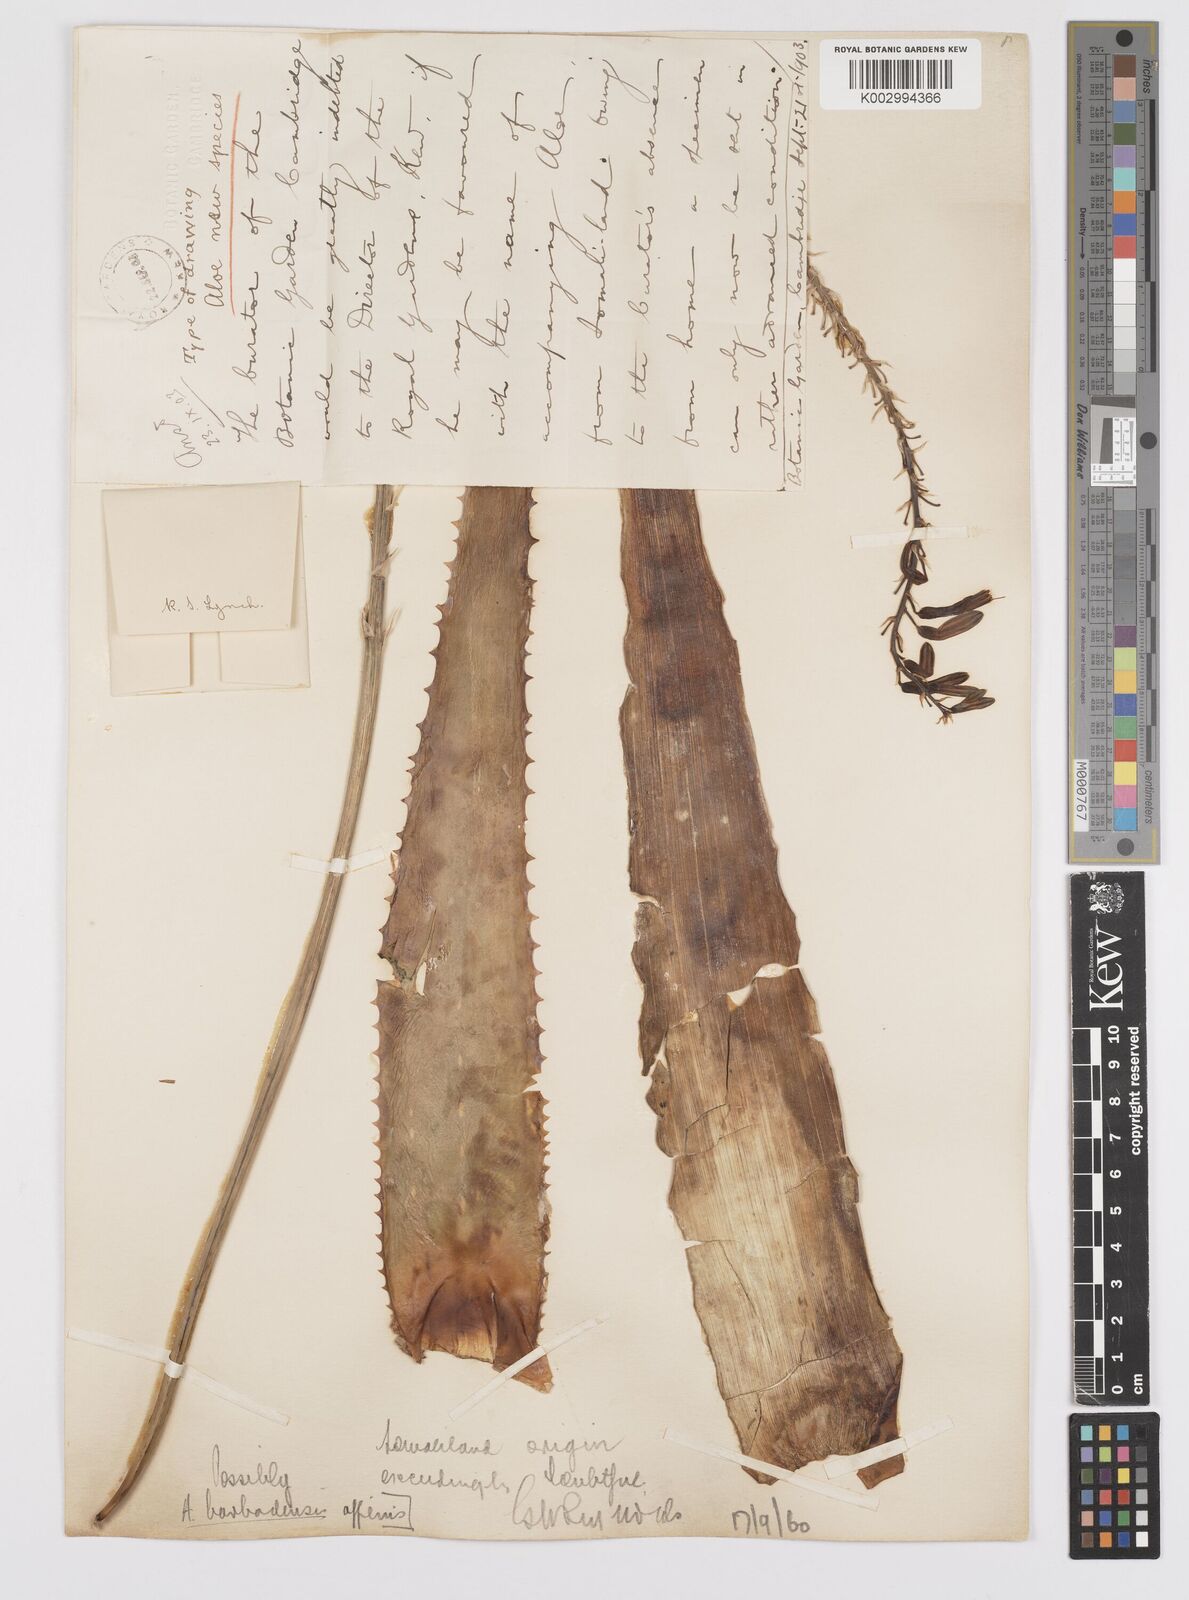 ROYAL BOTANIC GARDENS KEW
K002994366
BOTANIC GARDEN
CAMBRIDGE
Type of drawing
Aloe new species
The Curator of the
Botanic Garden Cambridge
would be greatly indebted
to the Director of the
Royal Gardens, Kew, if
he may be favoured
with the name of
accompanying Aloe
from Somaliland. Owing
to the Curator's absence
from home a specimen
can only now be sent in
rather advanced condition.
Botanic Garden, Cambridge Sept. 21st. 1903.
Ansd
23.IX.03
R. I. Lynch.
Somaliland origin
exceedingly doubtful.
Possibly
A. barbadensis affinis]
17/9/60
inches
centimeters
Don Williams
M000767
Kew
Royal Botanic Gardens
copyright reserved
0 1 2 3 4 5 6 7 8 9 10
cm